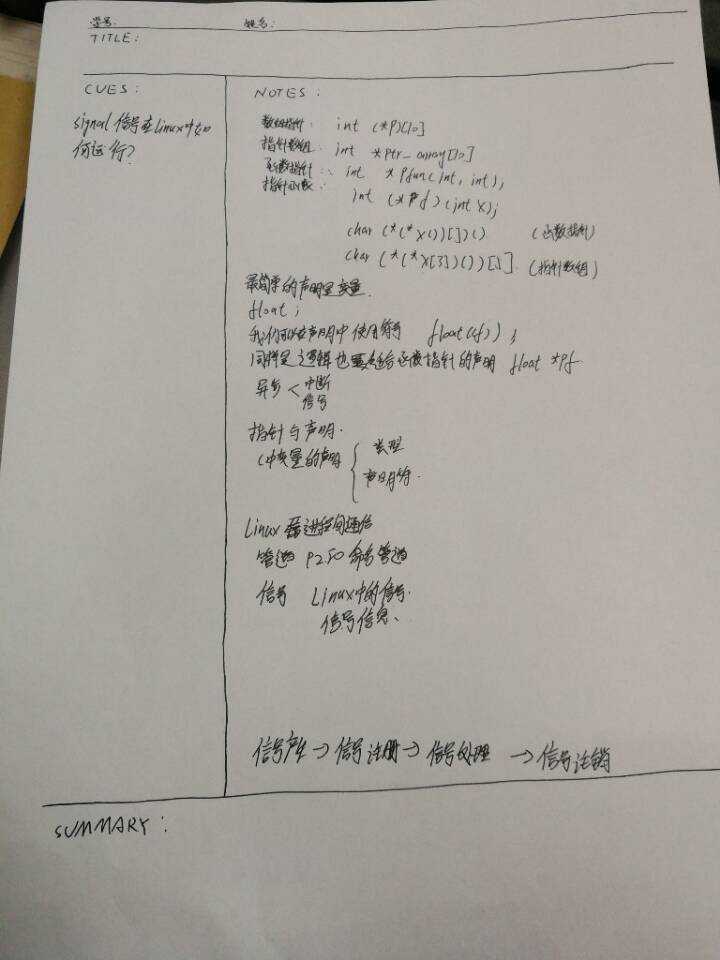 学号: 姓名:
TITLE:
CUES:
signal 信号在Linux中如
何运行?
NOTES:
数组指针: int (*P)[10]
指针数组: int *ptr_array[10]
函数指针: int *Pfun(int, int);
指针函数: int (*Pf)(int x);
char (*(*x())[])() (函数指针)
char (*(*x[3])())[5] (指针数组)
最简单的声明是变量
float ;
我们可以在声明中使用符号 float((f)) ;
同样是逻辑也适合函数指针的声明 float *pf
异步 < 中断
信号
指针与声明.
C中变量的声明 { 类型
声明符.
Linux 进程间通信
管道 P250 命名管道
信号 Linux中的信号.
信号信息、
信号产生→信号注册→信号处理 →信号注销
SUMMARY: